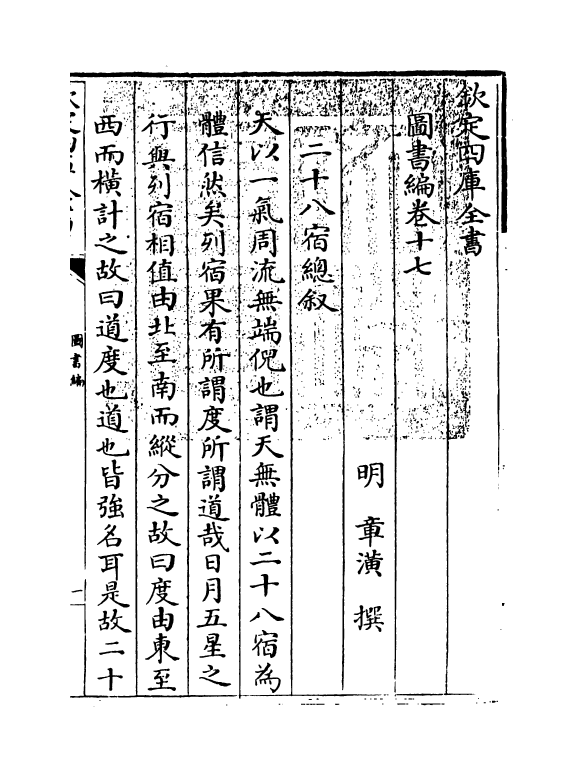 欽定四庫全書
圖書編卷十七
明 章潢 撰
二十八宿總叙
天以一氣周流無端倪也謂天無體以二十八宿為
體信然矣列宿果有所謂度所謂道哉日月五星之
行與列宿相值由北至南而縱分之故曰度由東至
西而橫計之故曰道度也道也皆強名耳是故二十
圖書編
一